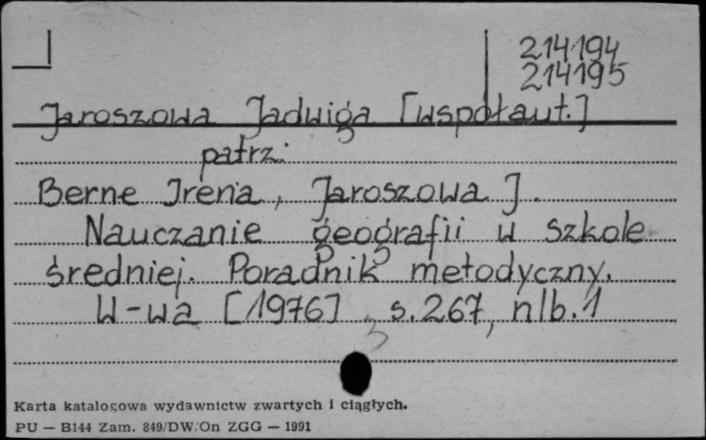 214194
214195
Jaroszowa Jadwiga [współaut.]
patrz:
Berne Irena, Jaroszowa J.
Nauczanie geografii w szkole
średniej. Poradnik metodyczny.
W-wa [1976], s.267, nlb.1
Karta katalogowa wydawnictw zwartych i ciągłych.
PU — B144 Zam. 849/DW/On ZGG — 1991